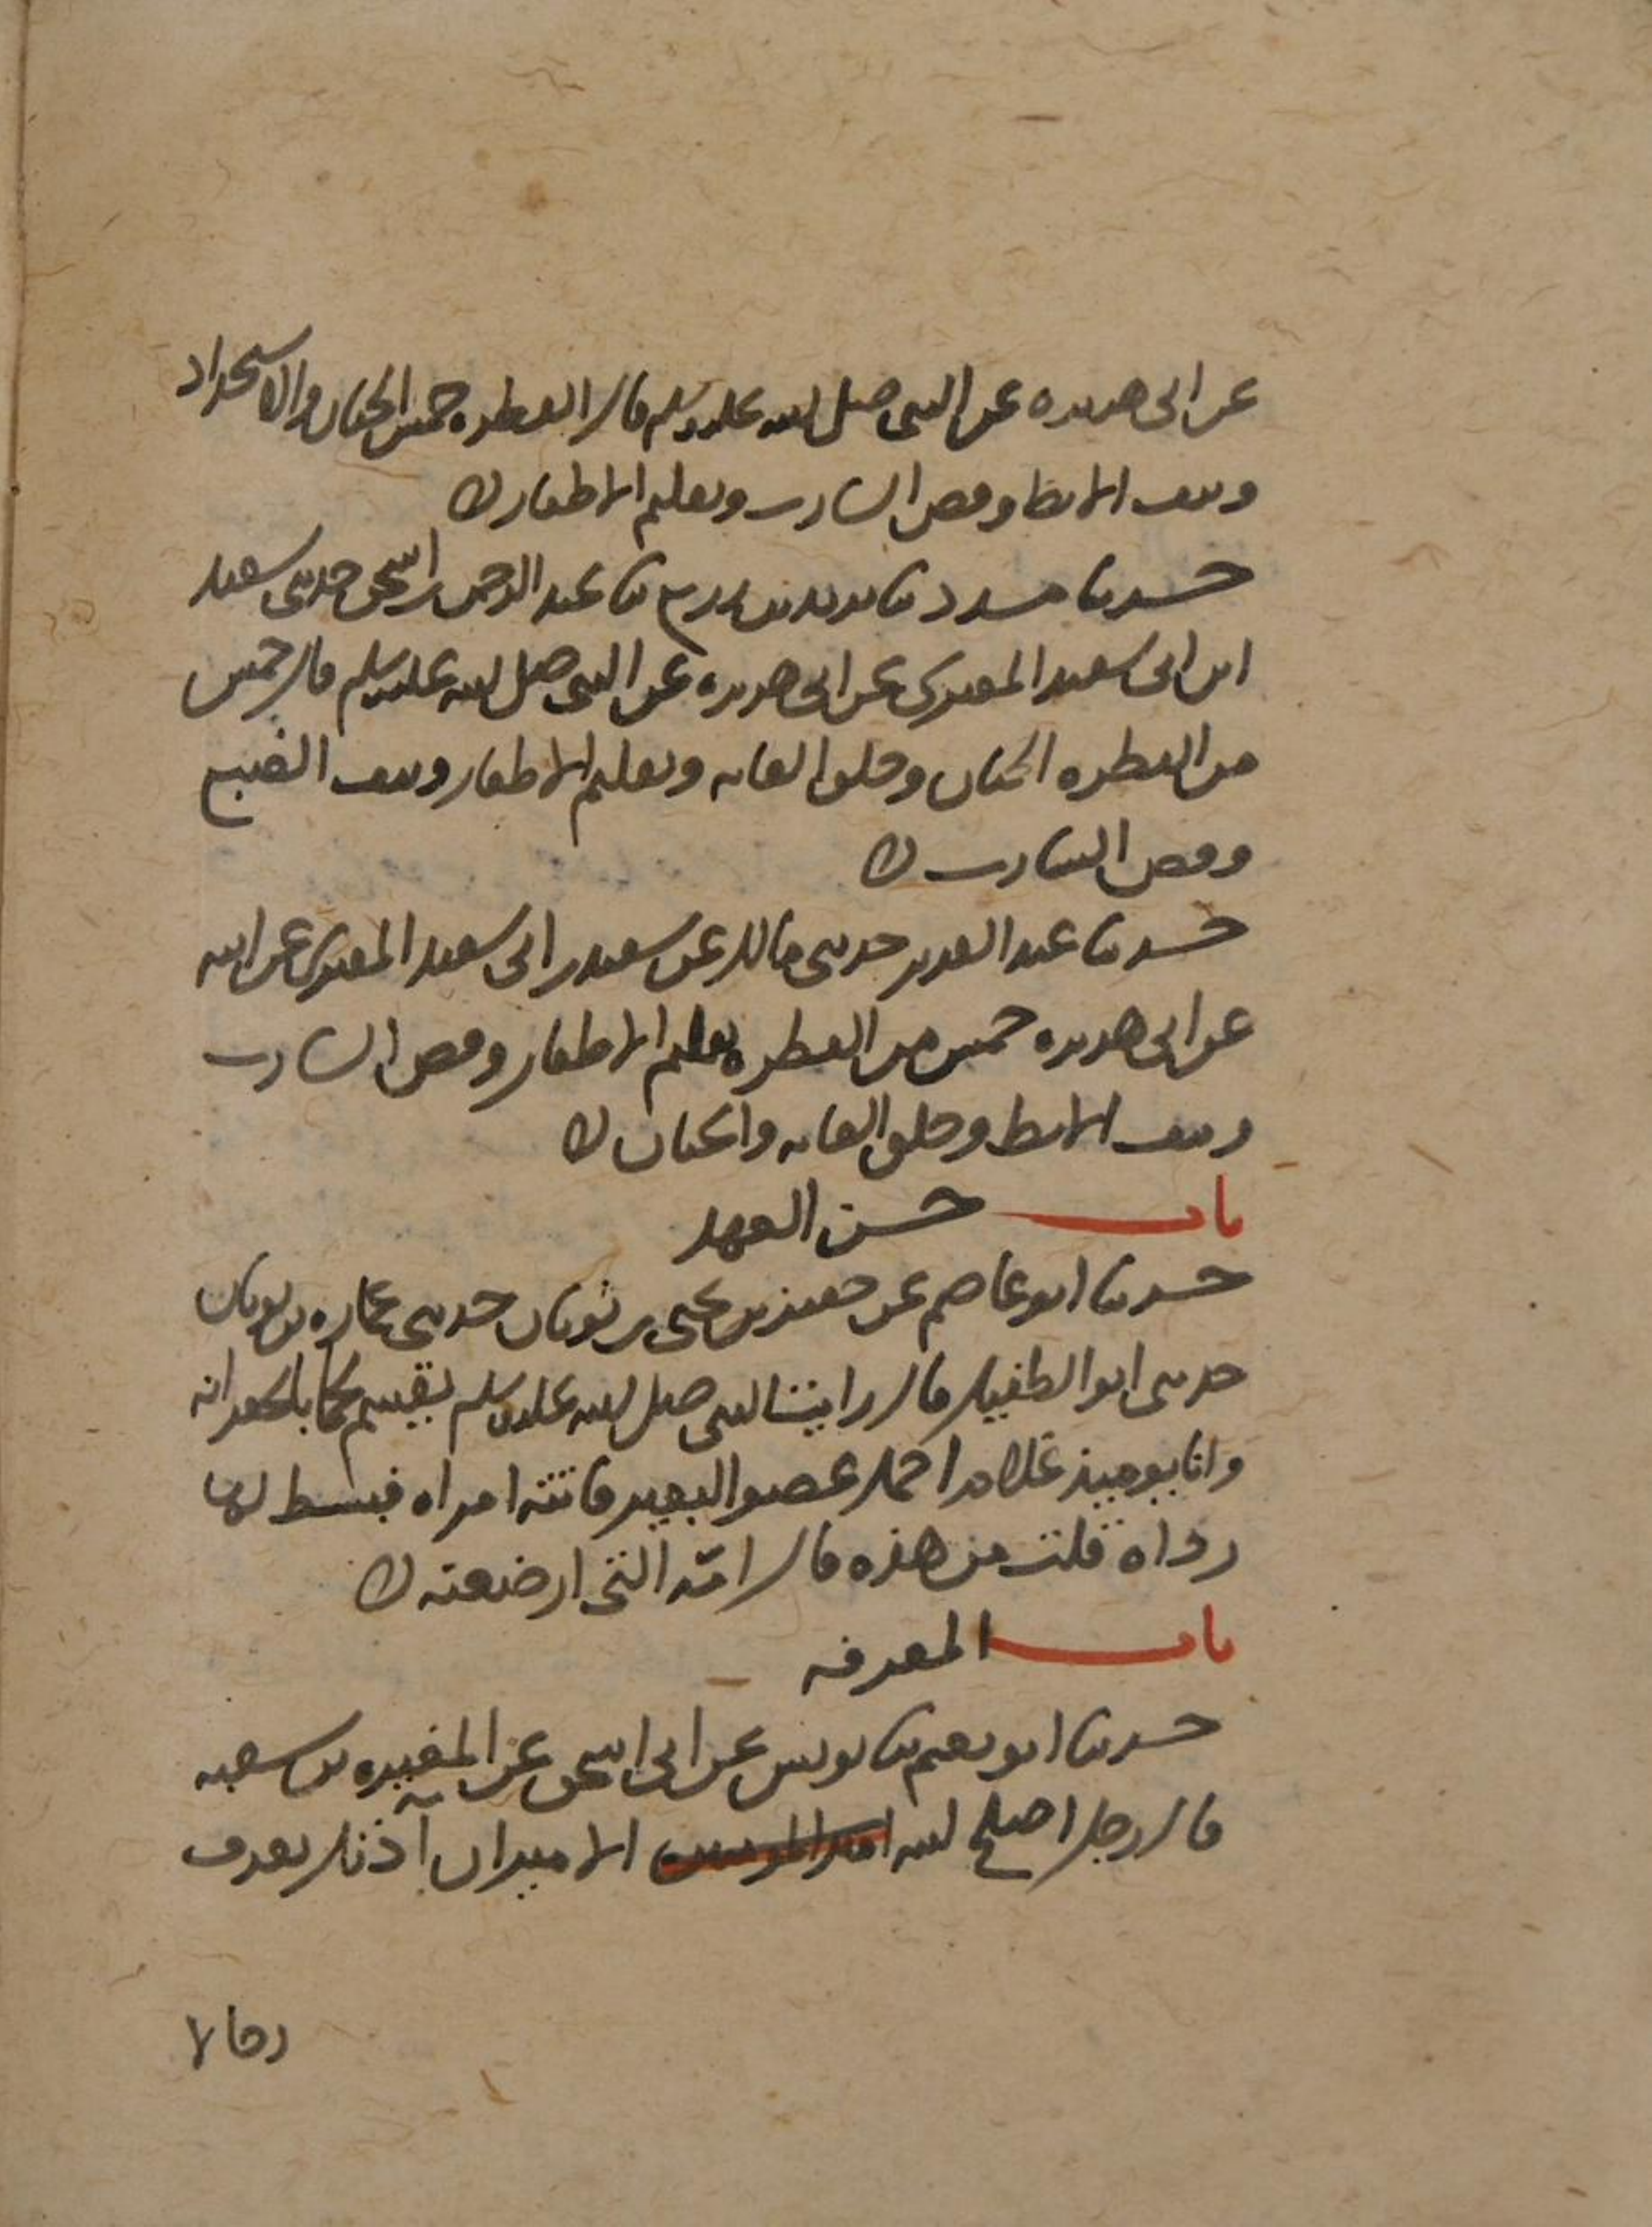 عن ابى هريره عن النبى صلى الله عليه وسلم قال الفطره خمس الختان والاستحداد
ونتف الابط وقص الشارب وتقليم الاظفار ه
حدثنا مسدد ثنا يزيد بن زريع ثنا عبد الرحمن بن اسحق حدثنى سعيد
ابن ابى سعيد المقبرى عن ابى هريره عن النبى صلى الله عليه وسلم قال خمس
من الفطره الختان وحلق العانه وتقليم الاظفار ونتف الضبع
وقص الشارب ه
حدثنا عبد العزيز حدثنى مالك عن سعيد بن ابى سعيد المقبرى عن ابيه
عن ابى هريره خمس من الفطره تقليم الاظفار وقص الشارب
ونتف الابط وحلق العانه والختان ه
باب حسن العهد
حدثنا ابو عاصم عن جعفر بن يحيى بن ثوبان حدثنى عماره بن ثوبان
حدثنى ابو الطفيل قال رايت النبى صلى الله عليه وسلم يقسم لحما بالجعرانه
وانا يوميذ غلام احمل عضو البعير فاتته امراه فبسط لها
رداه قلت من هذه قال امّه التى ارضعته ه
باب المعرفه
حدثنا ابو نعيم ثنا يونس عن ابى اسحق عن المغيره بن شعبه
قال رجل اصلح الله امير المومنين الامير ان آذنك يعرف
رجالا